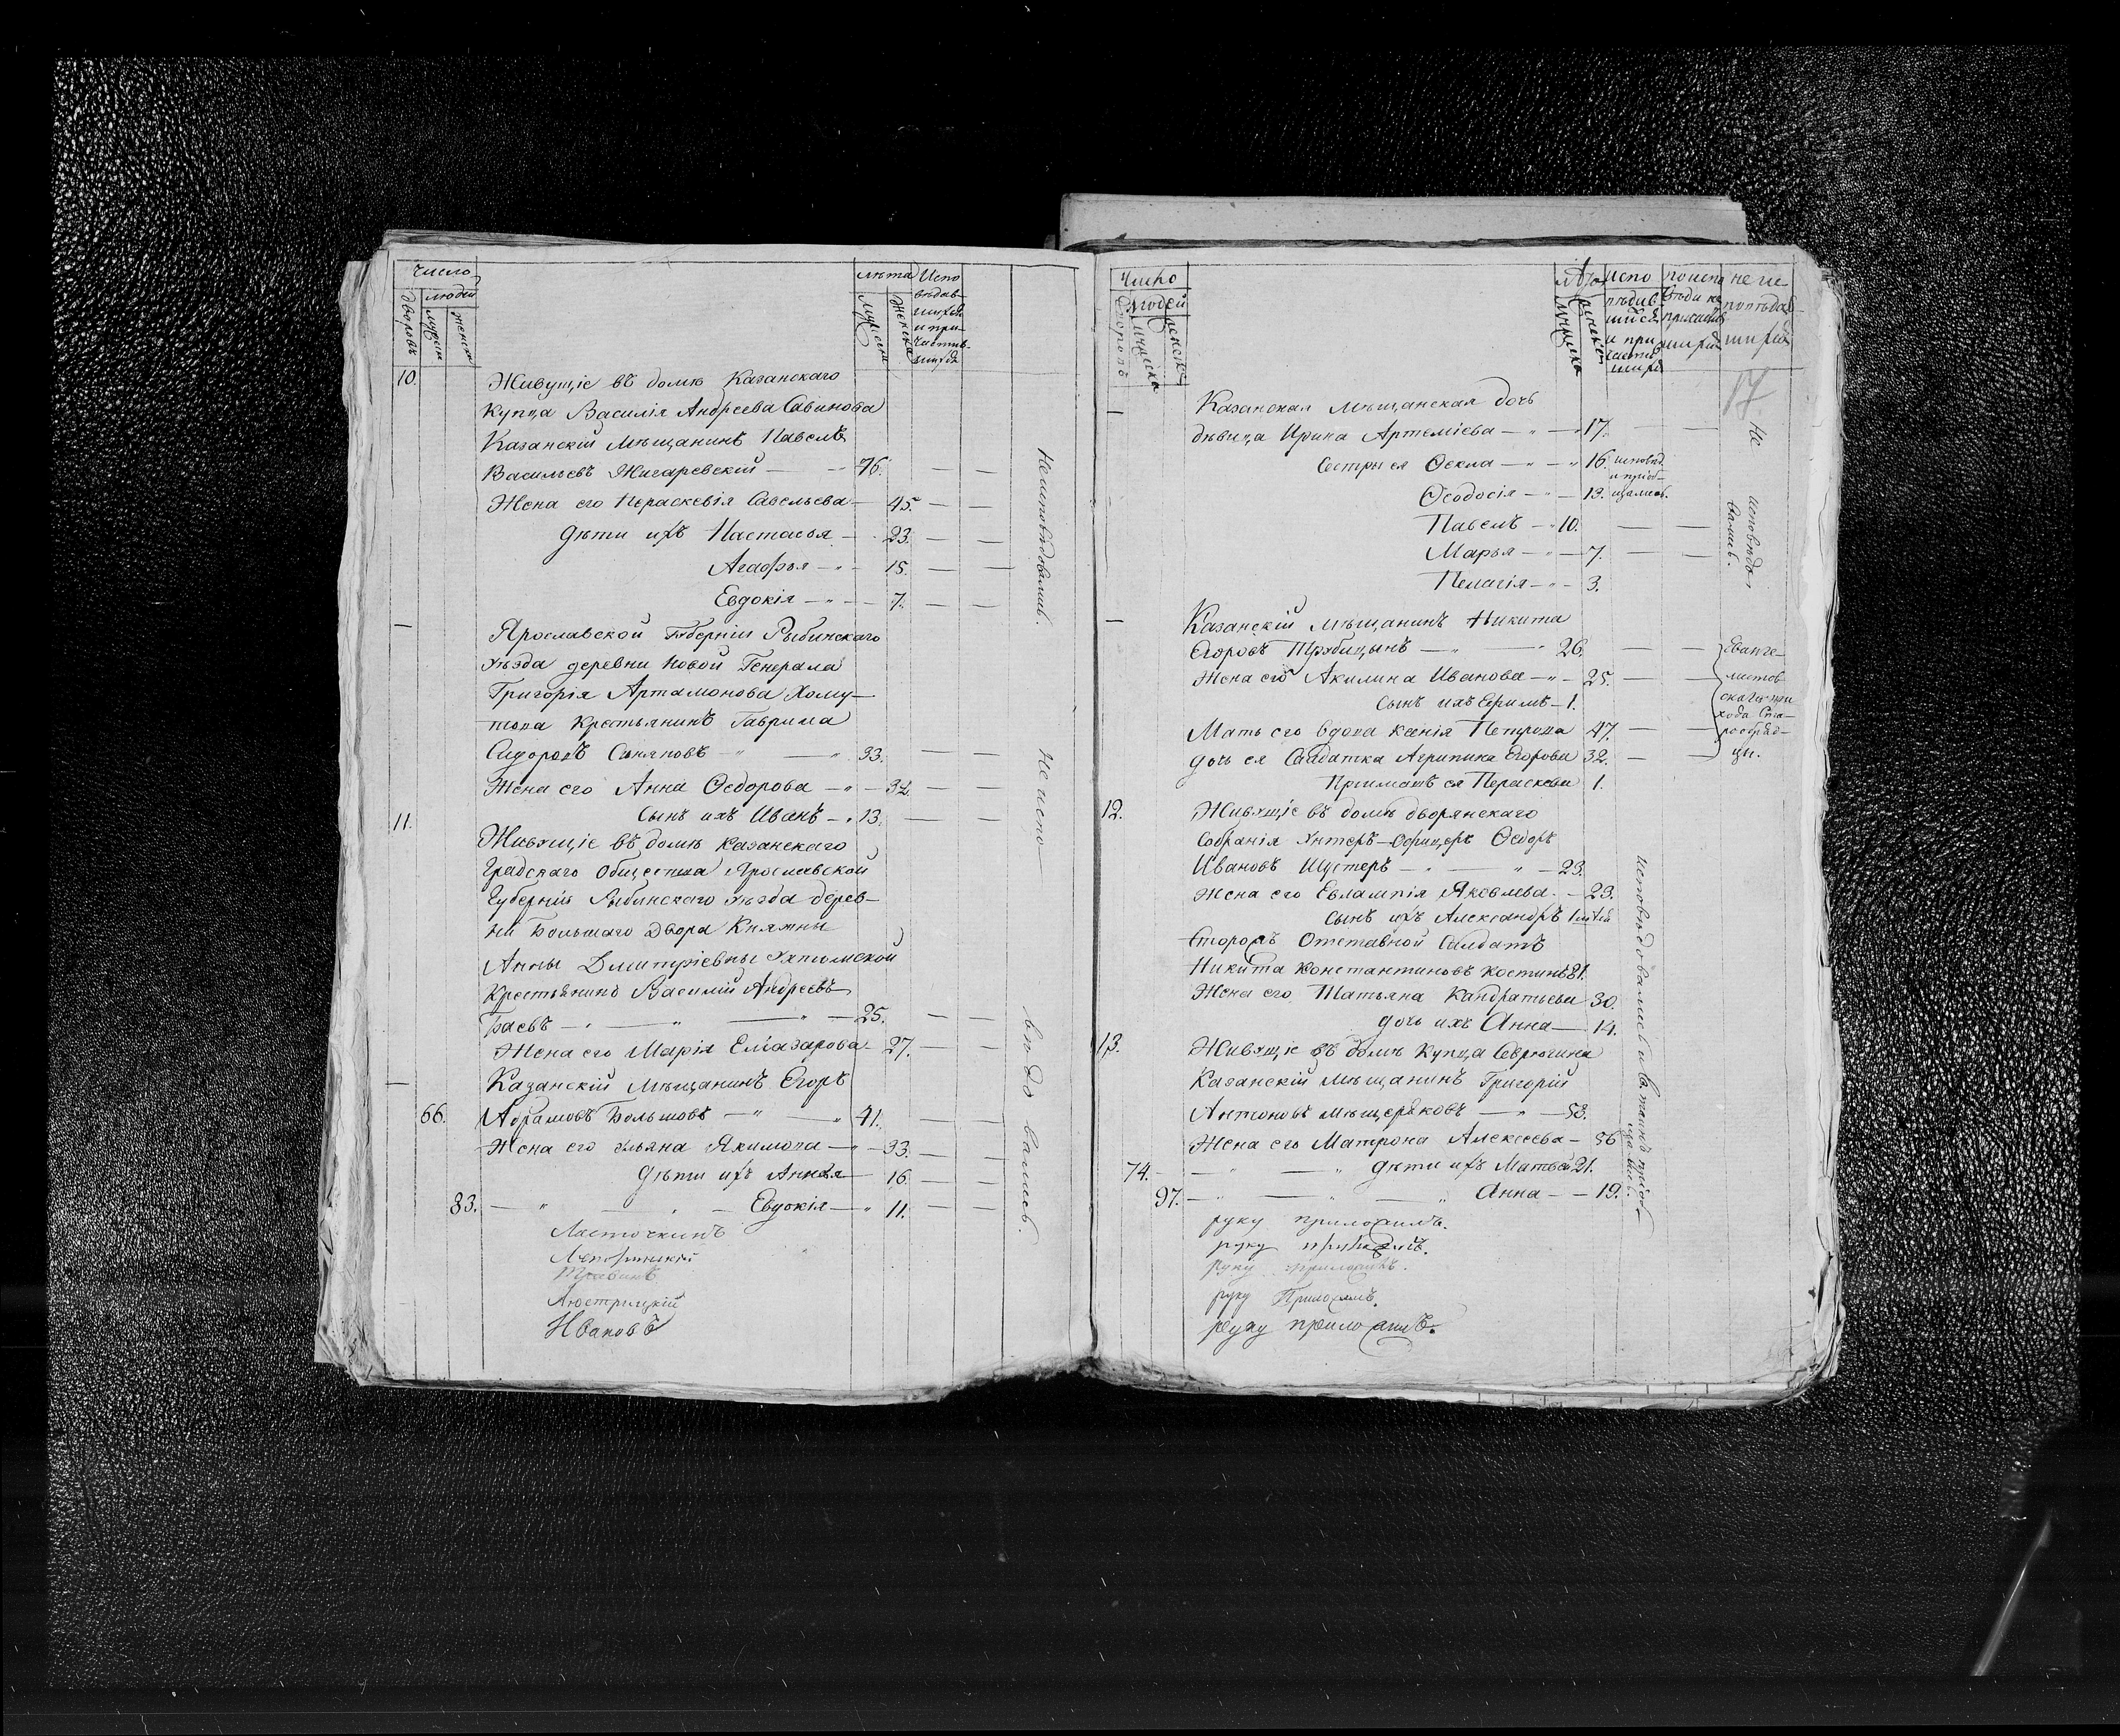 Число
людей
дворовъ
мужеска
женска
лѣта
мужеска
женска
Испо
вѣдав-
шихся
и при-
частив-
шихся
10.
Живущіе въ домѣ Казанскаго
купца Василія Андреева Савинова
Казанскій мѣщанинъ Павелъ
Васильевъ Жигаревскій — " 76.
Жена его Пераскевія Савельева — 45. — —
Дѣти ихъ Настасья — 23. — —
Агафья — " — 15. — —
Евдокія — " — 7. — —
— Ярославской Губерніи Рыбинскаго
уѣзда деревни Новой Генерала
Григорія Артамонова Хому-
това Крестьянинъ Гаврила
Сидоровъ — " — " 33. — —
Жена его Анна Ѳедорова — " — 32. — —
Сынъ ихъ Иванъ — " 13. — —
Неисповѣдовались.
11.
Живущіе въ домѣ Казанскаго
Градскаго Общества Ярославской
Губерніи Рыбинскаго уѣзда дерев-
ни Большаго Двора Княжны
Анны Дмитріевны Ухтомской
Крестьянинъ Василій Андреевъ
Баевъ — " — " — " — 25. — —
Жена его Марія Елиазарова — 27. — —
— Казанскій мѣщанинъ Егоръ
66. Абрамовъ Большовъ — " — " 41. — —
Жена его Ульяна Якимова — " — 33. — —
Дѣти ихъ — 16. — —
83. — " — " — Евдокія — " 11. — —
Не испо-
вѣдо
вались.
Ласточкинъ
Люстрицкій
Ивановъ
Число
людей
мужеска
женска
Лѣта
мужеска
женска
испо
вѣдав
шихся
и при
частив
шихся
по испо
вѣди не
причастив
шихся
не ис
повѣдав-
шихся
17
— Казанская мѣщанская дочь
дѣвица Ирина Артеміева — " — 17. — —
Сестры ея Ѳекла — " — " 16. исповѣд.
и пріоб-
Ѳеодосія — " — 13. щались.
Павелъ — " 10. — —
Марья — " — 7. — —
Пелагія — " — 3.
Не
исповѣдо-
вались.
— Казанскій мѣщанинъ Никита
Егоровъ Трубицынъ — " — " 26. — —
Жена его Акилина Иванова — " — 25. — —
Сынъ ихъ Ефимъ — 1.
Мать его вдова Ксенія Петрова 47. — —
дочь ея Салдатка Агрипина Егорова 32. — —
Пріимышъ ея Пераскева 1.
Еванге-
листов
скаго при
хода Ста-
рообряд-
цы.
12.
Живущіе въ домѣ дворянскаго
Собранія Унтеръ-Офицеръ Ѳедоръ
Ивановъ Шустеръ — " — " — 23.
Жена его Евлампія Яковлева — 23.
Сынъ ихъ Александръ 1
Сторожъ Отставной Салдатъ
Никита Константиновъ Костинъ 31.
Жена его Татьяна Кандратьева 30.
дочь ихъ Анна — 14.
13.
Живущіе въ домѣ купца Севрюгина
Казанскій мѣщанинъ Григорій
Антоновъ Мѣщеряковъ — " — 53.
Жена его Матрона Алексеева — 56
74. — " — " дѣти ихъ Матвей 21.
97. — " — " — " Анна — — 19.
исповѣдовались и св. таинъ пріоб-
щались.
руку приложилъ.
руку приложилъ.
руку приложилъ.
руку Приложилъ.
руку приложилъ.